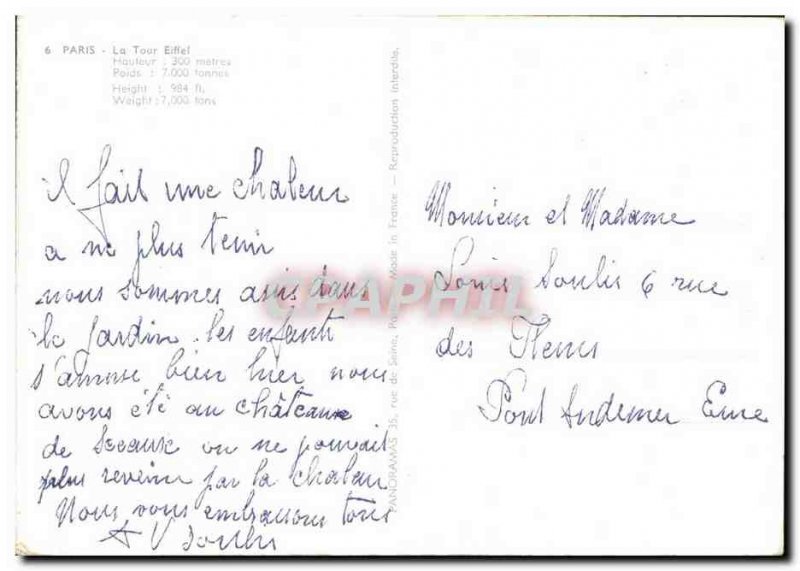 6 PARIS - La Tour Eiffel
Hauteur : 300 mètres
Poids : 7.000 tonnes
Height : 984 ft.
Weight : 7,000 tons
il fait une chaleur
a ne plus tenir
nous sommes assis dans
le jardin. les enfants
s'amuse bien hier nous
avons été au château
de Sceaux on ne pouvait
plus revenir par la chaleur
Nous vous embrassons tous
A V Soulis
PANORAMAS 35, rue de Seine, Paris - Made in France — Reproduction interdite.
CPAPHIL
Monsieur et Madame
Louis Soulis 6 rue
des Fleurs
Pont Audemer Eure